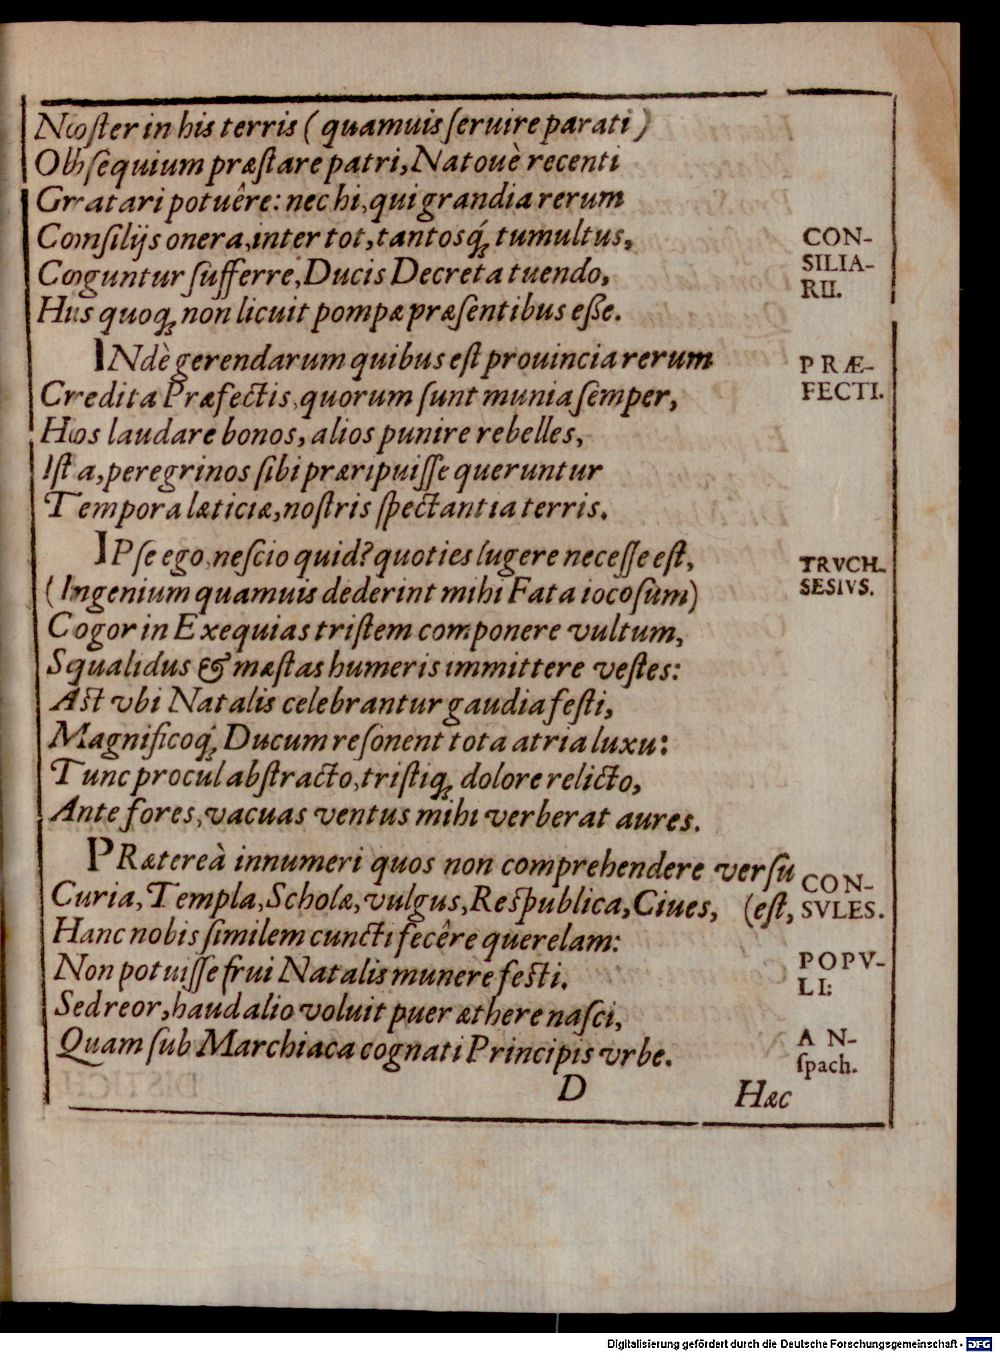 Noster in his terris (quamuis seruire parati)
Obsequium præstare patri, Natouè recenti
Gratari potuêre: nec hi, qui grandia rerum
Consilijs onera, inter tot, tantosq́; tumultus,
CON-
SILIA-
RII.
Coguntur sufferre, Ducis Decreta tuendo,
His quoq; non licuit pompæ præsentibus eße.
INdè gerendarum quibus est prouincia rerum
PRÆ-
FECTI.
Credita Præfectis, quorum sunt munia semper,
Hos laudare bonos, alios punire rebelles,
Ista, peregrinos sibi præripuisse queruntur
Tempora læticiæ, nostris spectantia terris.
IPse ego, nescio quid? quoties lugere necesse est,
TRVCH-
SESIVS.
(Ingenium quamuis dederint mihi Fata iocosum)
Cogor in Exequias tristem componere vultum,
Squalidus & mæstas humeris immittere vestes:
Ast vbi Natalis celebrantur gaudia festi,
Magnificoq́; Ducum resonent tota atria luxu:
Tunc procul abstracto, tristiq; dolore relicto,
Ante fores, vacuas ventus mihi verberat aures.
PRætereà innumeri quos non comprehendere versu
(est,
CON-
SVLES.
Curia, Templa, Scholæ, vulgus, Respublica, Ciues,
Hanc nobis similem cuncti fecêre querelam:
POPV-
LI:
Non potuisse frui Natalis munere festi.
Sed reor, haud alio voluit puer æthere nasci,
Quam sub Marchiaca cognati Principis vrbe.
AN-
spach.
D
Hæc
Digitalisierung gefördert durch die Deutsche Forschungsgemeinschaft - DFG